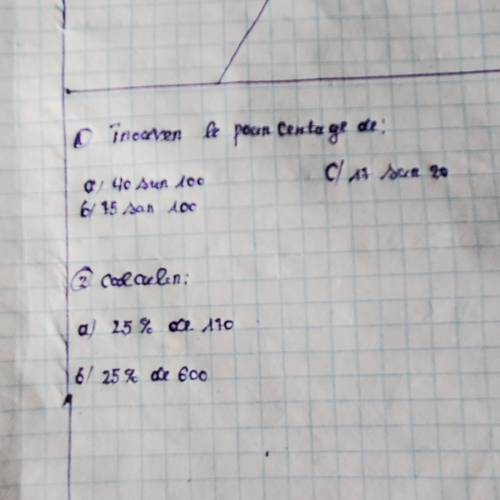 ① Trouver le pourcentage de:
a/ 40 sur 100
C/ 17 sur 20
b/ 75 sur 100
② Calculer:
a) 25% de 170
b/ 25% de 600